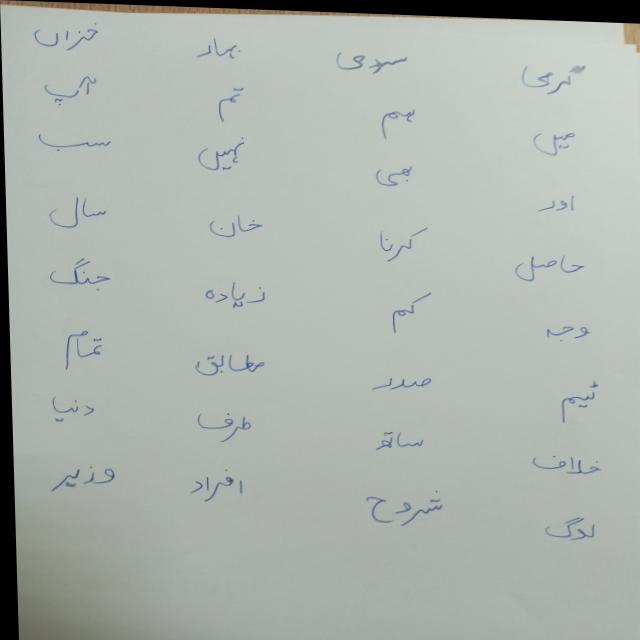 گرمی سردی بہار خزاں
میں ہم تم آپ
اور بھی نہیں سب
حاصل کرنا خان سال
وجہ کم زیادہ جنگ
ٹیم صدر مطابق تمام
خلاف ساتھ طرف دنیا
لوگ شروح افراد وزیر